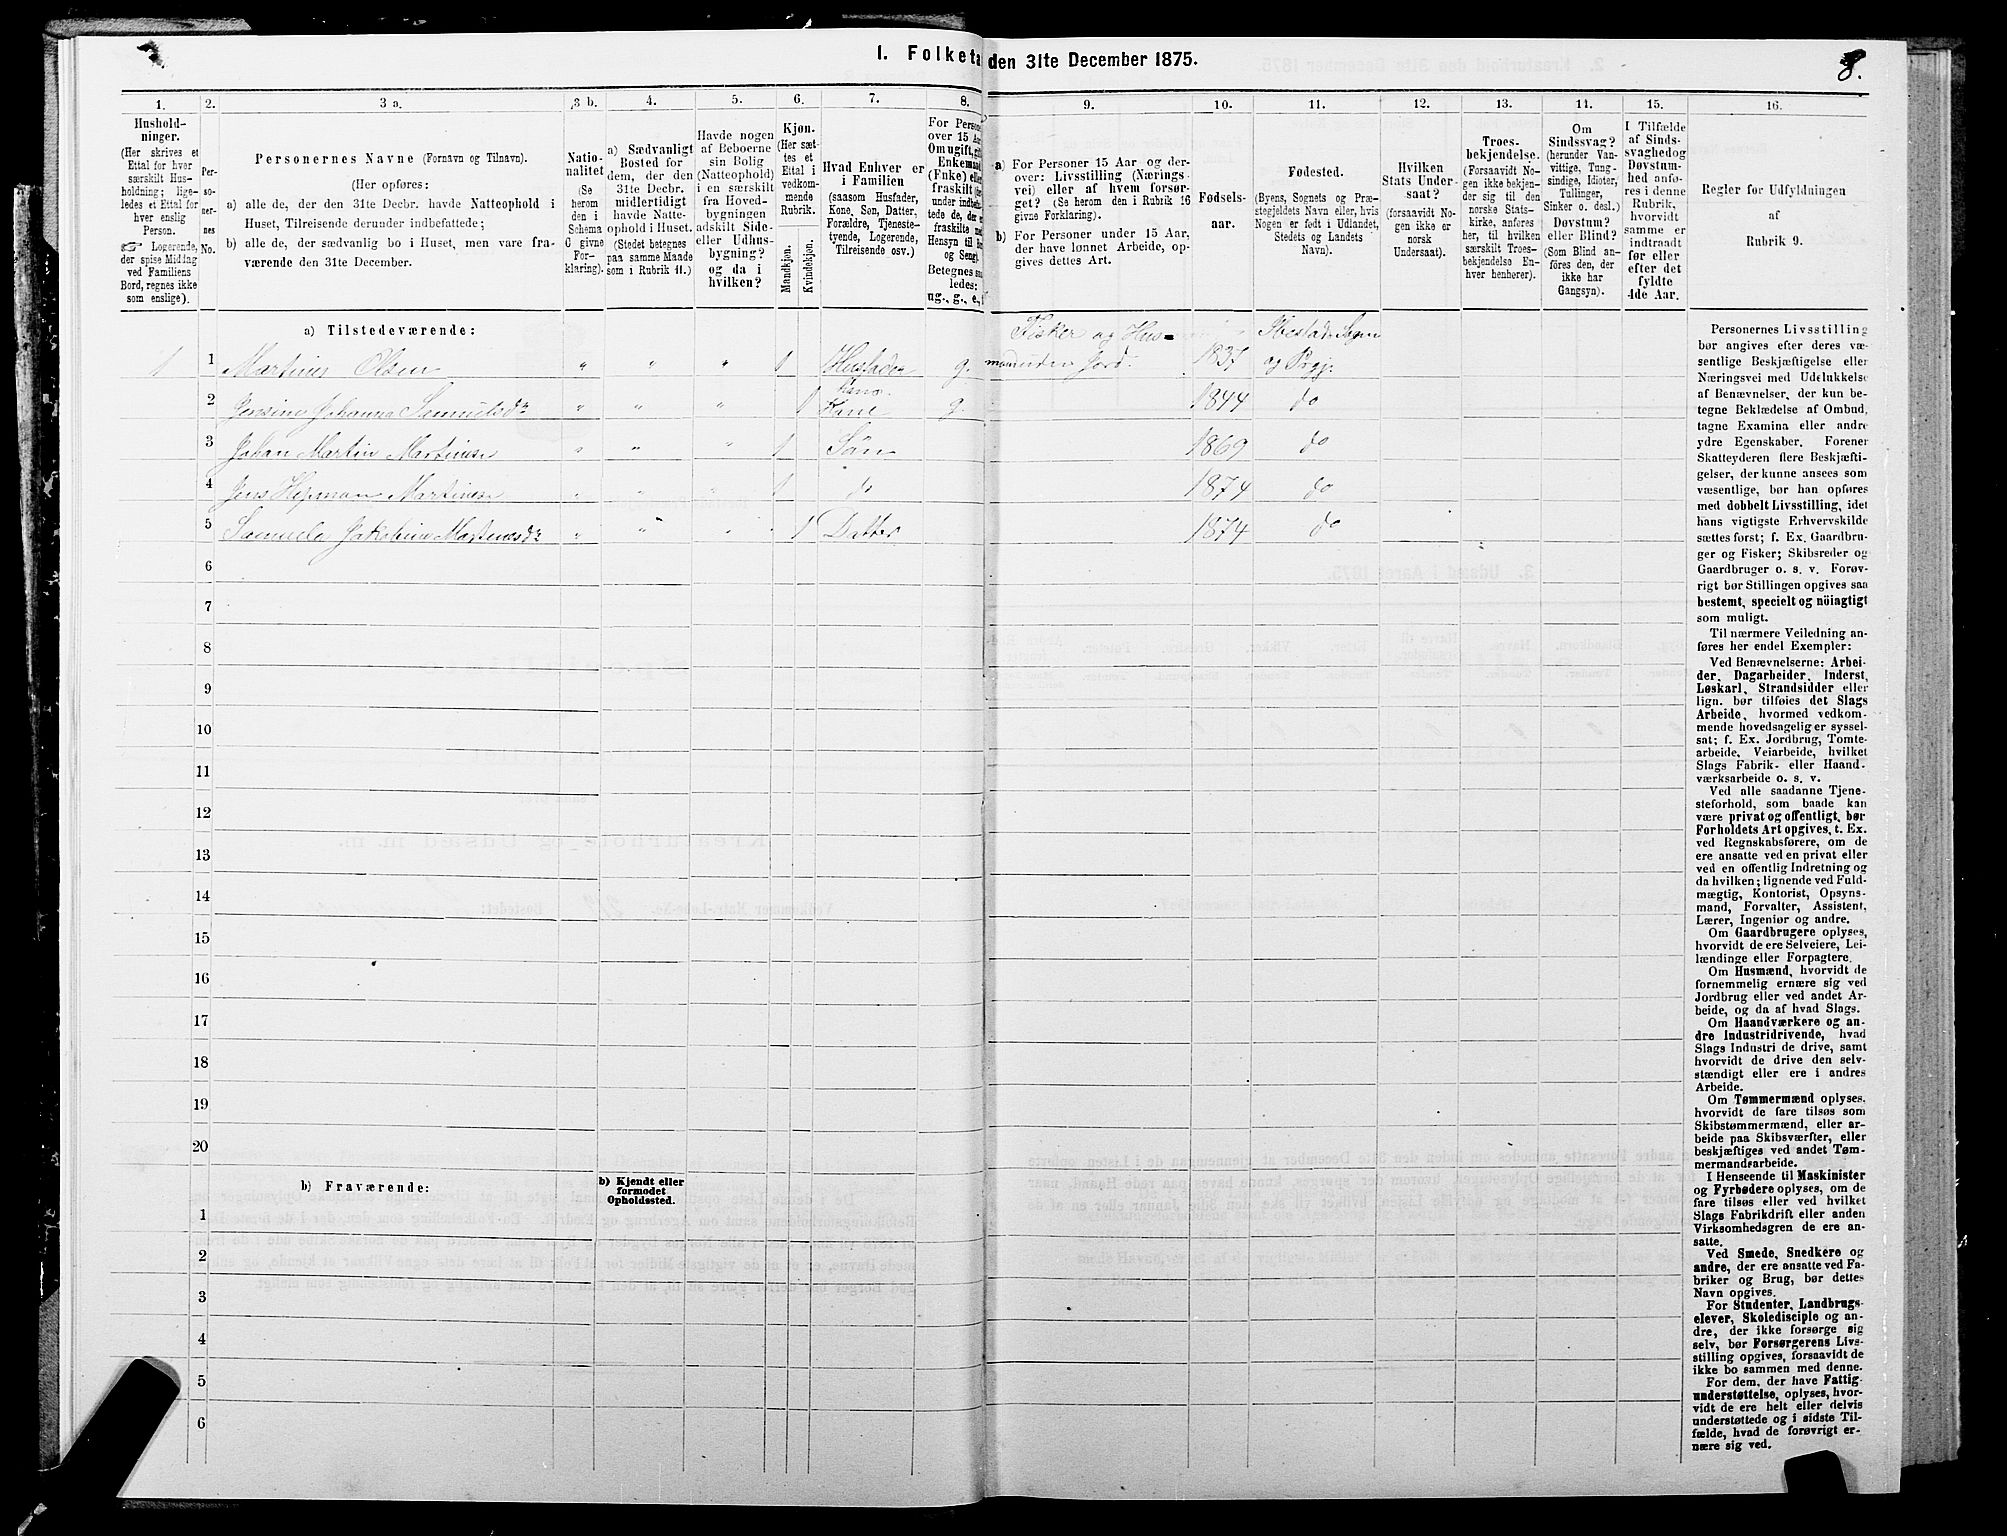 I. Folketa den 31te December 1875.
8.
1.
2.
3 a.
3 b.
4.
5.
6.
7.
8.
9.
10.
11.
12.
13.
14.
15.
16.
Hushold-
ninger.
(Her skrives et
Ettal for hver
særskilt Hus-
holdning; lige-
ledes et Ettal for
hver enslig
Person.
☞ Logerende,
der spise Middag
ved Familiens
Bord, regnes ikke
som enslige).
Per-
so-
ner-
nes
No.
Personernes Navne (Fornavn og Tilnavn).
(Her opføres:
a) alle de, der den 31te Decbr. havde Natteophold i
Huset, Tilreisende derunder indbefattede;
b) alle de, der sædvanlig bo i Huset, men vare fra-
værende den 31te December.
Natio-
nalitet
(Se
herom
den i
Schema
C givne
For-
klaring).
a) Sædvanligt
Bosted for
dem, der den
31te Decbr.
midlertidigt
havde Natte-
ophold i Huset.
(Stedet betegnes
paa samme Maade
som i Rubrik 11.)
Havde nogen
af Beboerne
sin Bolig
(Natteophold)
i en særskilt
fra Hoved-
bygningen
adskilt Side-
eller Udhus-
bygning?
og da i
hvilken?
Kjøn.
(Her sæt-
tes et
Ettal i
vedkom-
mende
Rubrik.
Mandkjøn.
Kvindekjøn.
Hvad Enhver er
i Familien
(saasom Husfader,
Kone, Søn, Datter,
Forældre, Tjeneste-
tyende, Logerende,
Tilreisende osv.)
For Persone
over 15 Aa
Om ugift, gif
Enkemand
(Enke) elle
fraskilt
under indbefat
tede de, der e
fraskilte med
Hensyn til
og Seng).
Betegnes saa
ledes:
ug., g., e.,
a) For Personer 15 Aar og der-
over: Livsstilling (Nærings-
vei) eller af hvem forsør-
get? (Se herom den i Rubrik 16
givne Forklaring).
b) For Personer under 15 Aar,
der have lønnet Arbeide, op-
gives dettes Art.
Fødsels-
aar.
Fødested.
(Byens, Sognets og Præ-
stegjeldets Navn eller, hvis
Nogen er født i Udlandet,
Stedets og Landets
Navn).
Hvilken
Stats Under-
saat?
(forsaavidt No-
gen ikke er
norsk
Undersaat).
Troes-
bekjendelse.
(Forsaavidt No-
gen ikke bekjen-
der sig til den
norske Stats-
kirke, anføres
her, til hvilken
særskilt Troes-
bekjendelse En-
hver henhører).
Om
Sindssvag?
(herunder Van-
vittige, Tung-
sindige, Idioter,
Tullinger,
Sinker o. desl.)
Døvstum?
eller Blind?
(Som Blind an-
føres den, der
ikke har
Gangsyn).
I Tilfælde
af Sinds-
svaghed og
Døvstum-
hed anfø-
res i denne
Rubrik,
hvorvidt
samme er
indtraadt
før eller
efter det
fyldte
4de Aar.
Regler for Udfyldningen
af
Rubrik 9.
a) Tilstedeværende:
1 1 Martinus Olsen " " " 1 Husfader g. Fisker og Hus-
mand uden Jord. 1837 Ibestad Sogn
og Prgj.
2 Jensine Johanna Samuelsdr " " " 1 Hans
Kone g. 1844 do
3 Johan Martin Martinus. " " " 1 Søn 1869 do
4 Jens Hepman Martinus. " " " 1 do 1874 do
5 Samuela Jakobine Martinusdr " " " 1 Datter 1874 do
6
7
8
9
10
11
12
13
14
15
16
17
18
19
20
b) Fraværende:
b) Kjendt eller
formodet
Opholdssted.
1
2
3
4
5
6
Personernes Livsstilling
bør angives efter deres væ-
sentlige Beskjæftigelse eller
Næringsvei med Udelukkelse
af Benævnelser, der kun be-
tegne Beklædelse af Ombud,
tagne Examina eller andre
ydre Egenskaber. Forener
Skatteyderen flere Beskjæfti-
gelser, der kunne ansees som
væsentlige, bør han opføres
med dobbelt Livsstilling, idet
hans vigtigste Erhvervskilde
sættes først; f. Ex. Gaardbru-
ger og Fisker; Skibsreder og
Gaardbruger o. s. v. Forøv-
rigt bør Stillingen opgives saa
bestemt, specielt og nöiagtigt
som muligt.
Til nærmere Veiledning an-
føres her endel Exempler:
Ved Benævnelserne: Arbei-
der, Dagarbeider, Inderst,
Løskarl, Strandsidder eller
lign. bør tilføies det Slags
Arbeide, hvormed vedkom-
mende hovedsagelig er syssel-
sat; f. Ex. Jordbrug, Tomte-
arbeide, Veiarbeide, hvilket
Slags Fabrik- eller Haand-
værksarbeide o. s. v.
Ved alle saadanne Tjene-
steforhold, som baade kan
være privat og offentligt, bør
Forholdets Art opgives, t. Ex.
ved Regnskabsførere, om de
ere ansatte ved en privat eller
ved en offentlig Indretning og
da hvilken; lignende ved Fuld-
mægtig, Kontorist, Opsyns-
mand, Forvalter, Assistent,
Lærer, Ingeniør og andre.
Om Gaardbrugere oplyses,
hvorvidt de ere Selveiere, Lei-
lændinge eller Forpagtere.
Om Husmænd, hvorvidt de
fornemmelig ernære sig ved
Jordbrug eller ved andet Ar-
beide, og da af hvad Slags.
Om Haandværkere og an-
dre Industridrivende, hvad
Slags Industri de drive, samt
hvorvidt de drive den selv-
stændigt eller ere i andres
Arbeide.
Om Tømmermænd oplyses,
hvorvidt de fare tilsøs som
Skibstømmermænd, eller ar-
beide paa Skibsværfter, eller
beskjæftiges ved andet Tøm-
mermandsarbeide.
I Henseende til Maskinister
og Fyrbødere oplyses, om de
fare tilsøs eller ved hvilket
Slags Fabrikdrift eller anden
Virksomhedsgren de ere an-
satte.
Ved Smede, Snedkere og
andre, der ere ansatte ved Fa-
briker og Brug, bør dettes
Navn opgives.
For Studenter, Landbrugs-
elever, Skoledisciple og an-
dre, der ikke forsørge sig
selv, bør Forsørgerens Livs-
stilling opgives, forsaavidt de
ikke bo sammen med denne.
For dem, der have Fattig-
understøttelse, oplyses, hvor-
vidt de ere helt eller delvis
understøttede og i sidste Til-
fælde, hvad de forøvrigt er-
nære sig ved.